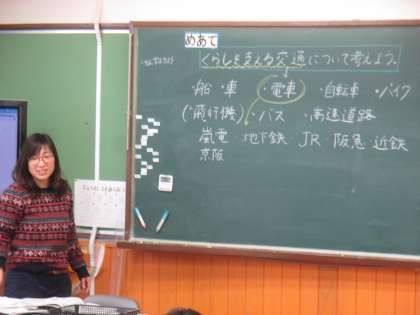 めあて
くらしを支える交通について考えよう。
・船 ・車 ・電車 ・自転車 ・バイク
(・飛行機) ・バス ・高速道路
嵐電・地下鉄・JR・阪急・近鉄
京阪